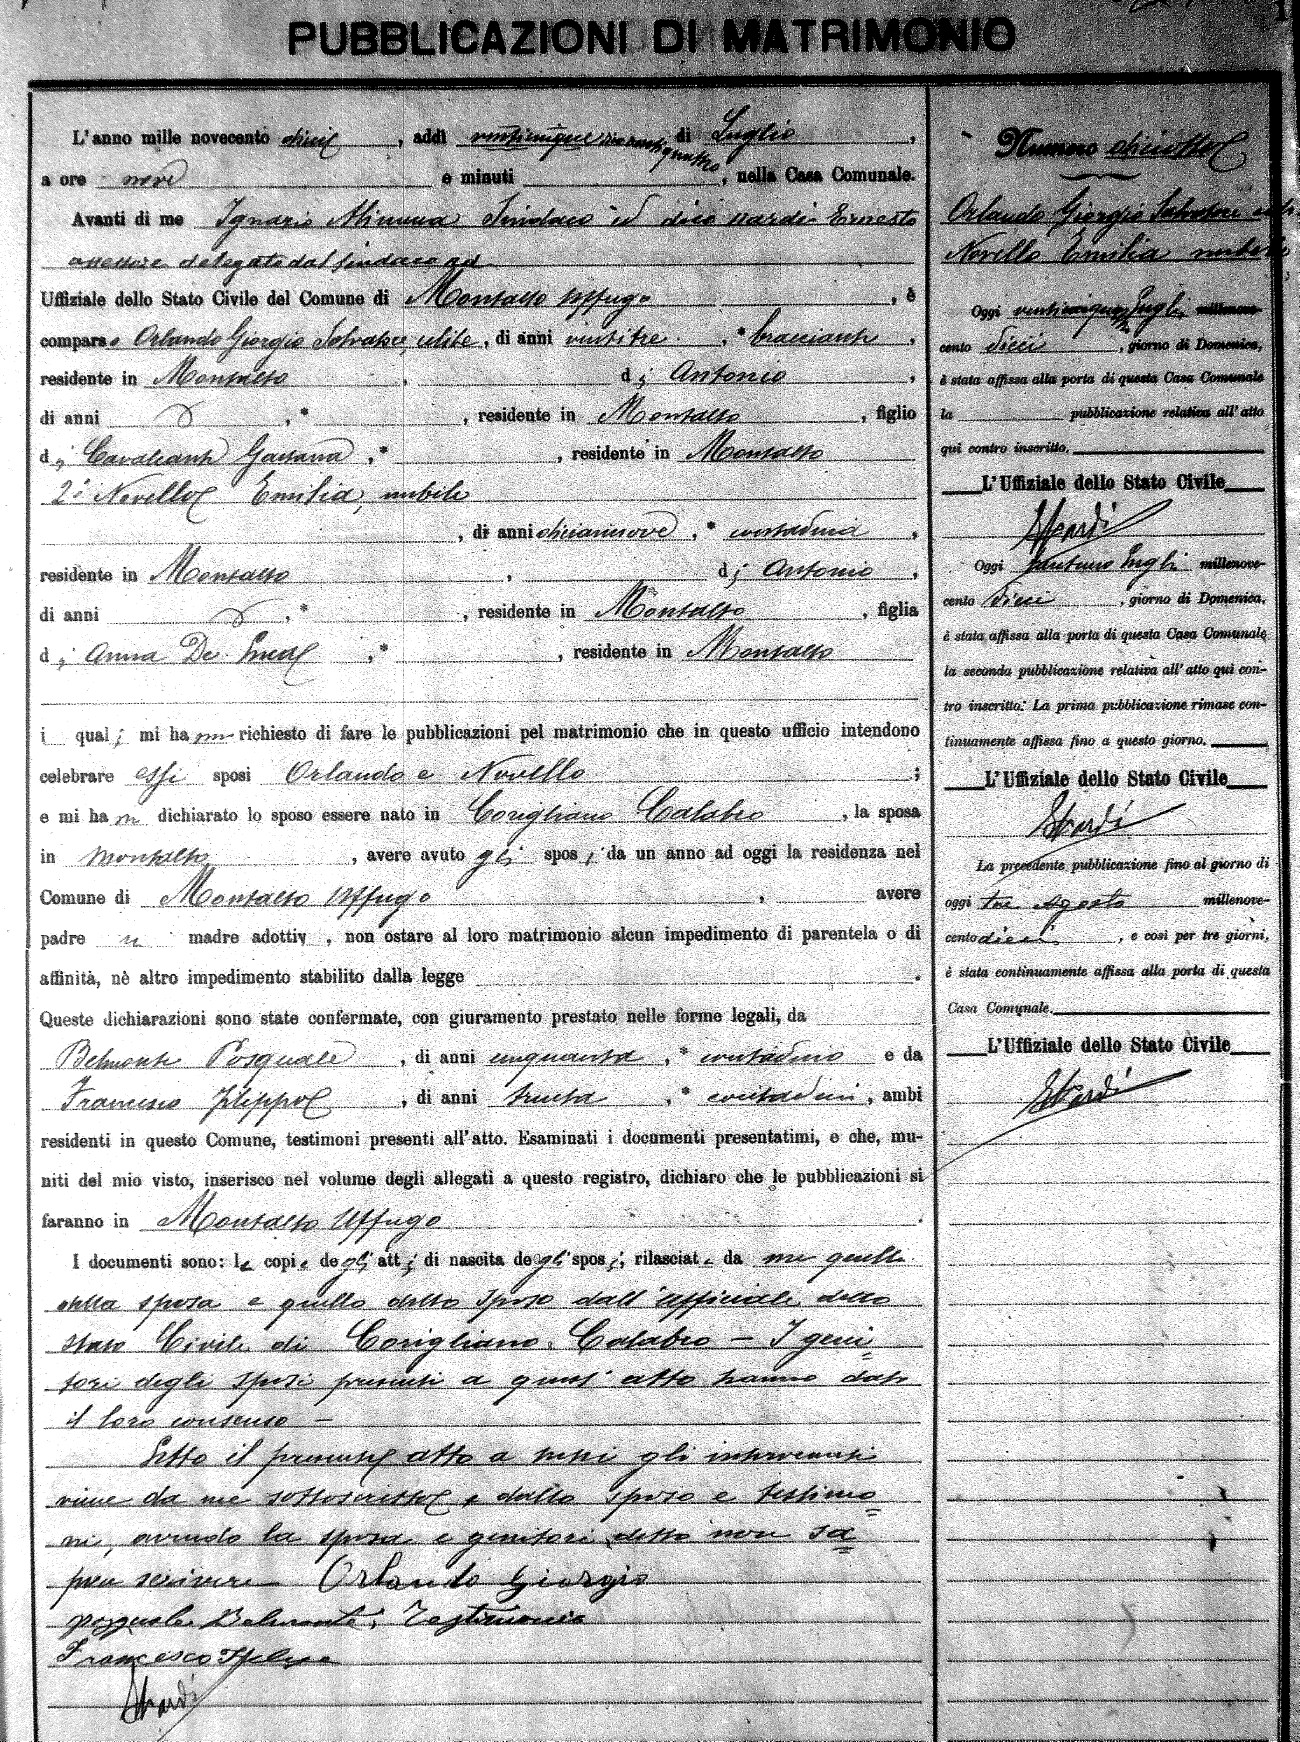 PUBBLICAZIONI DI MATRIMONIO
L'anno mille novecento dieci, addì venticinque dico ventiquattro di Luglio,
a ore nove e minuti , nella Casa Comunale.
Avanti di me Ignazio Alimena Sindaco ed dico Nardi Ernesto
assessore delegato dal sindaco ad
Uffiziale dello Stato Civile del Comune di Montalto Uffugo, è
comparso Orlando Giorgio Salvatore, celibe, di anni ventitre, * bracciante,
residente in Montalto, di Antonio,
di anni , * , residente in Montalto, figlio
di Cavalcante Gaetana, * , residente in Montalto
2º Novello Emilia, nubile
, di anni diciannove, * contadina,
residente in Montalto, di Antonio,
di anni , * , residente in Montalto, figlia
di Anna De , * , residente in Montalto
i quali mi hanno richiesto di fare le pubblicazioni pel matrimonio che in questo ufficio intendono
celebrare essi sposi Orlando e Novello;
e mi hanno dichiarato lo sposo essere nato in Corigliano Calabro, la sposa
in Montalto, avere avuto gli sposi da un anno ad oggi la residenza nel
Comune di Montalto Uffugo, avere
padre n madre adottiv , non ostare al loro matrimonio alcun impedimento di parentela o di
affinità, nè altro impedimento stabilito dalla legge .
Queste dichiarazioni sono state confermate, con giuramento prestato nelle forme legali, da
Belmonte Pasquale, di anni cinquanta, * contadino e da
Francesco Filippo, di anni trenta, * contadini, ambi
residenti in questo Comune, testimoni presenti all'atto. Esaminati i documenti presentatimi, e che, mu-
niti del mio visto, inserisco nel volume degli allegati a questo registro, dichiaro che le pubblicazioni si
faranno in Montalto Uffugo.
I documenti sono: le copie degli atti di nascita degli sposi; rilasciate da me quella
della sposa e quello dello sposo dall'ufficiale dello
stato Civile di Corigliano Calabro - I geni
tori degli sposi presenti a quest'atto hanno dato
il loro consenso -
Letto il presente atto a tutti gli intervenuti
viene da me sottoscritto e dallo sposo e testimo
ni, avendo la sposa e genitori detto non sa
per scrivere Orlando Giorgio
pasquale Belmonte, Testimonio
Francesco
Nardi
Numero diciotto
Orlando Giorgio Salvatore celibe
Novello Emilia nubile
Oggi venticinque Luglio millenove-
cento dieci, giorno di Domenica,
è stata affissa alla porta di questa Casa Comunale
la pubblicazione relativa all'atto
qui contro inscritto.
L'Uffiziale dello Stato Civile
Nardi
Oggi trentuno Luglio millenove-
cento dieci, giorno di Domenica,
è stata affissa alla porta di questa Casa Comunale
la seconda pubblicazione relativa all'atto qui con-
tro inscritto. La prima pubblicazione rimase con-
tinuamente affissa fino a questo giorno.
L'Uffiziale dello Stato Civile
Nardi
La precedente pubblicazione fino al giorno di
oggi tre Agosto millenove-
cento dieci, e così per tre giorni,
è stata continuamente affissa alla porta di questa
Casa Comunale.
L'Uffiziale dello Stato Civile
Nardi